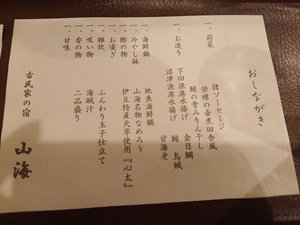 おしながき
一、前菜
猪ソーセージ
栄螺の壷煮田舎風
鯖の骨みりん干し
一、お造り
下田漁港水揚げ 金目鯛
沼津漁港水揚げ 鯵 烏賊
甘海老
一、海鮮鍋 地魚海鮮鍋
一、冷やし鉢 山海名物なめろう
一、酢の物 伊豆特産天草使用『心太』
一、お麦ぎ
一、雑炊 ふんわり玉子仕立て
一、吸い物 海賊汁
一、香の物 二品盛り
一、甘味
古民家の宿 山海